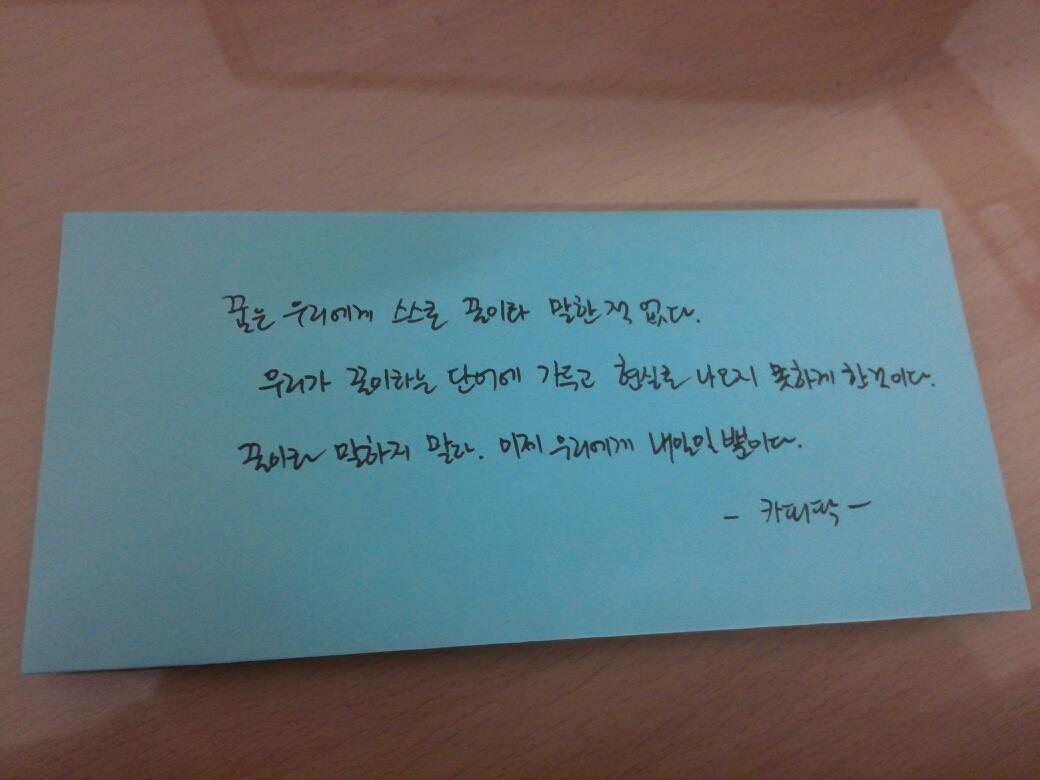 꿈은 우리에게 스스로 꿈이라 말한 적 없다.
우리가 꿈이라는 단어에 가두고 현실로 나오지 못하게 한것이다.
꿈이라 말하지 말라. 이제 우리에게 내일일 뿐이다.
- 카피팍 -